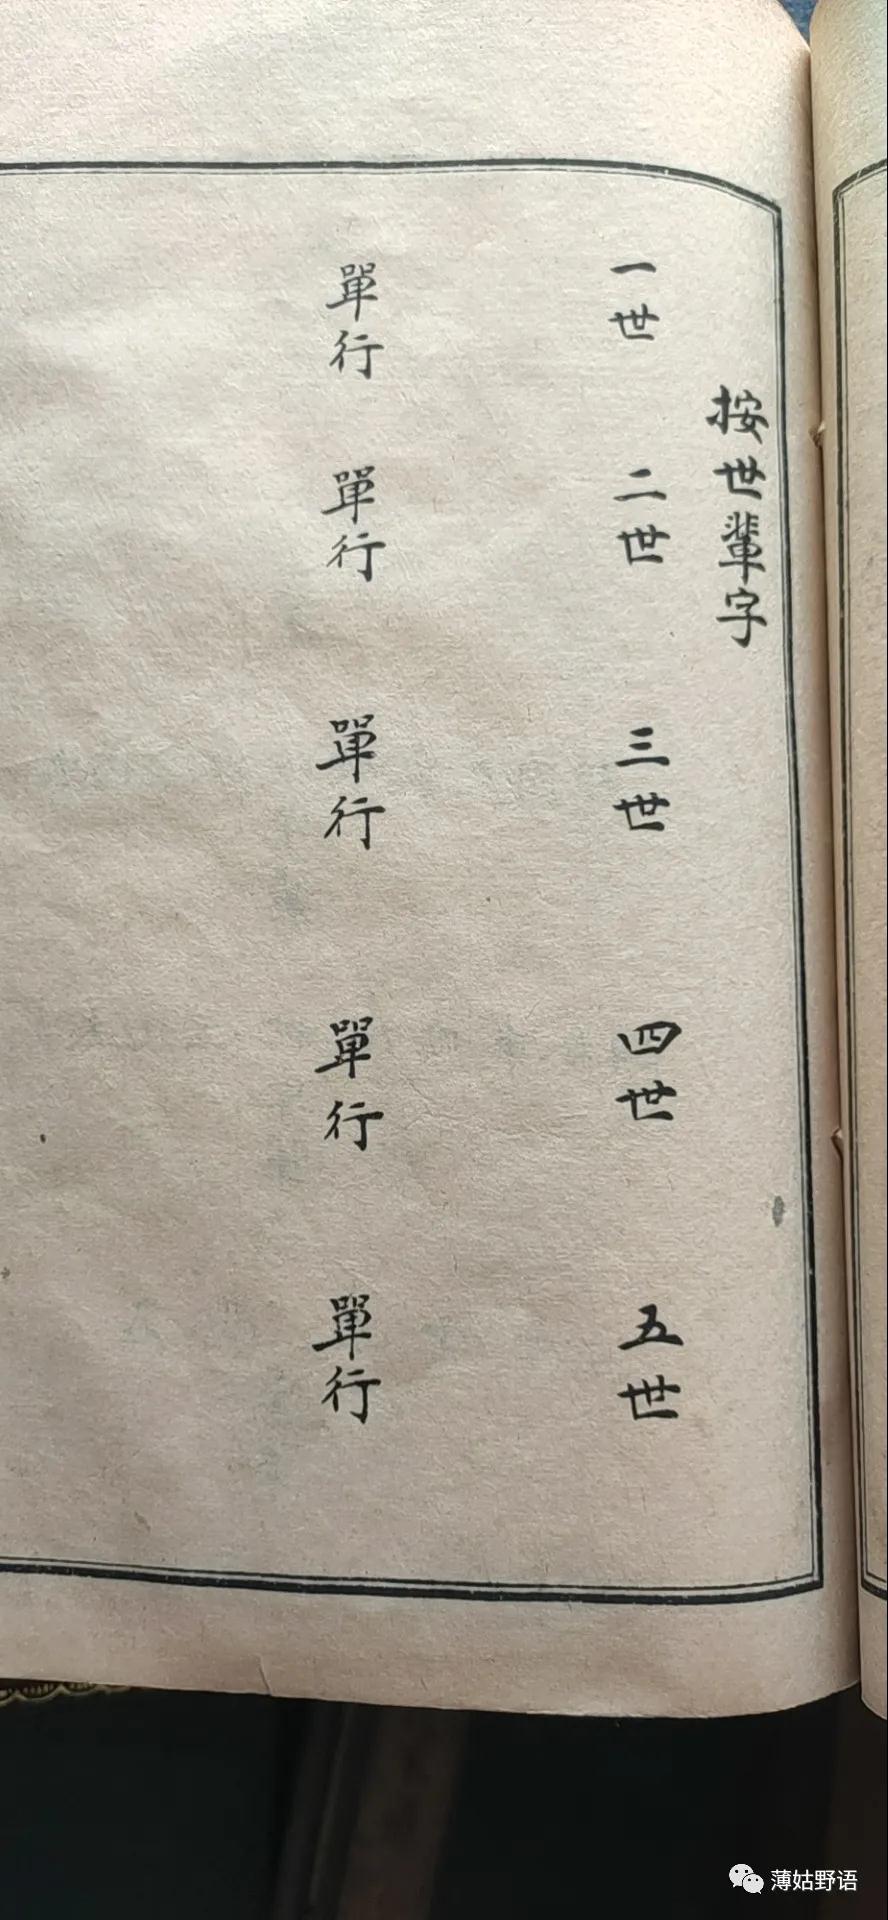 按世輩字
一世 二世 三世 四世 五世
單行 單行 單行 單行 單行
薄姑野语